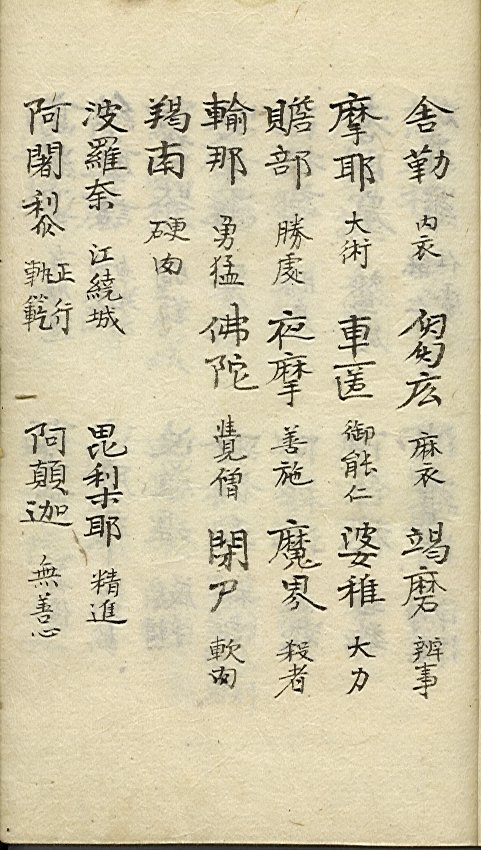 舎勤 内衣 芻麻 麻衣 竭磨 辨事
摩耶 大術 車匿 御能仁 婆稚 大力
贍部 勝處 夜摩 善施 魔界 殺者
輸那 勇猛 佛陀 覺僧 閉尸 軟肉
羯南 硬肉
波羅奈 江繞城 毘梨耶 精進
阿闍黎 正行 軌範 阿顛迦 無善心